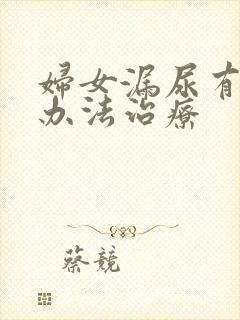 婦女漏尿有
办法治療
蔡競